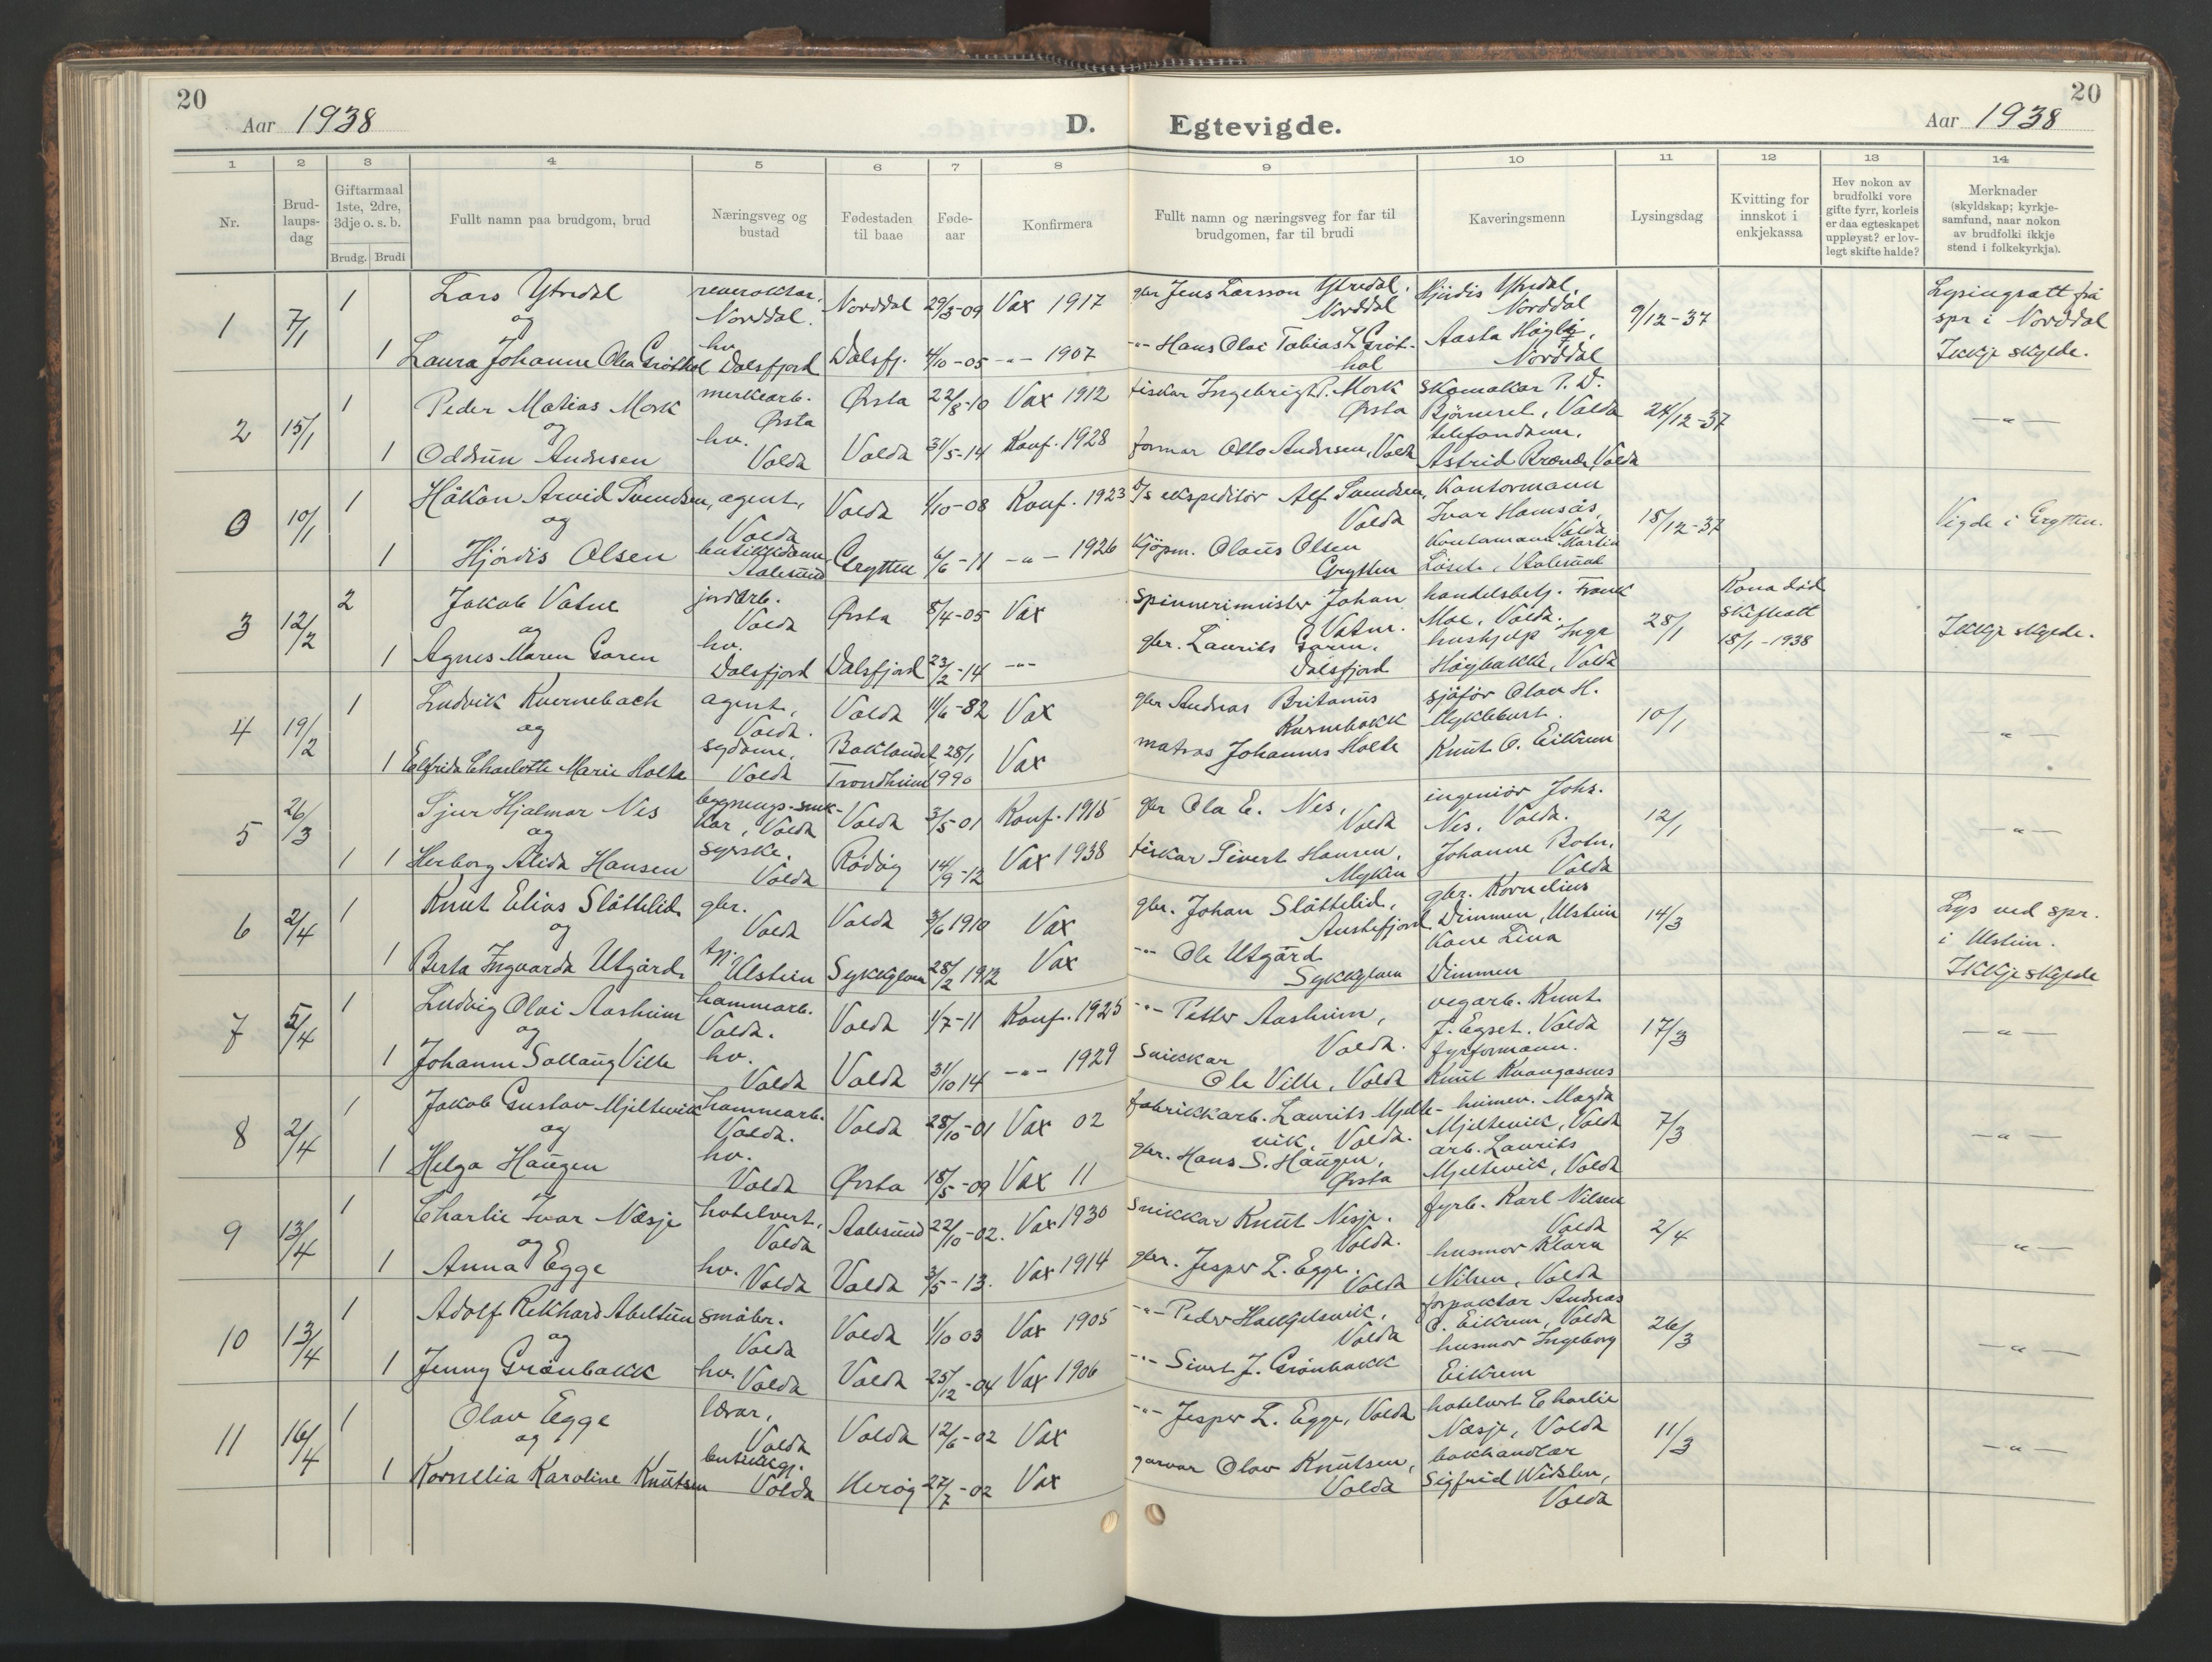 20
Aar 1938
D. Egtevigde.
Aar 1938
20
1 2 3 4 5 6 7 8 9 10 11 12 13 14
Nr.
Brud-
laups-
dag
Giftarmaal
1ste, 2dre,
3dje o. s. b.
Brudg. Brudi
Fullt namn paa brudgom, brud
Næringsveg og
bustad
Fødestaden
til baae
Føde-
aar
Konfirmera
Fullt namn og næringsveg for far til
brudgomen, far til brudi
Kaveringsmenn
Lysingsdag
Kvitting for
innskot i
enkjekassa
Hev nokon av
brudfolki vore
gifte fyrr, korleis
er daa egteskapet
uppløyst? er lov-
legt skifte halde?
Merknader
(skyldskap; kyrkje-
samfund, naar nokon
av brudfolki ikkje
stend i folkekyrkja).
1 7/1 1 Lars Ytredal Norddal. Norddal 29/3-09 Vax 1917 gbr Jens Larsson Ytredal, Norddal Hjördis Ytredal, Norddal 9/12-37 Lysingsatt frå
spr i Norddal
og
1 Laura Johanne Olea Gröthol hv. Dalsfjord Dalsfj. 4/10-05 -"- 1907 -"- Hans Olai Tobias L Gröt-
hol Aasta Höglij, Norddal Ikkje skylde.
2 15/1 1 Peder Matias Mork merkearb. Ørsta Ørsta 22/8-10 Vax 1912 fiskar Ingebrigt P. Mork Ørsta skomakar P. D. Bjørneset, Volda 24/12-37 -"-
og
1 Oddrun Andresen hv. Volda Volda 31/5-14 Konf. 1928 formar Otto Andresen, Volda telefondame, Astrid Brænde, Volda
0 10/1 1 Håkon Arvid Svendsen, agent, Volda Volda 4/10-08 Konf. 1923 D/s ekspeditör Alf Svendsen, Volda Kontormann Ivar Hamsås, Volda 18/12-37 Vigde i Grytten.
og
1 Hjördis Olsen butikkdame Aalesund Grytten 6/6-11 -"- 1926 kjöpm. Olaus Olsen Grytten Kontormann Martin Löset, Aalesund
3 12/2 2 Jakob Vatne jordarb. Volda Ørsta 8/4-05 Vax spinnerimeister Johan Vatne. handelsbetj. Frank Moe, Volda. 28/1 Kona död
skifteatt
18/1-1938 Ikkje skylde.
og
1 Agnes Maren Garen hv. Dalsfjord Dalsfjord 23/2-14 -"- gbr. Laurits Garen, Dalsfjord hushjelp Inga Högbakke, Volda
4 19/2 1 Ludvik Kvernebach agent, Volda. Volda 11/6-82 Vax gbr Andreas Britanus Kvernebakk sjåför Olav H. Myklebust. 10/1 -"-
og
1 Elfrida Charlotte Marie Holte sydame, Volda Baklandet Trondheim 28/1 1990 Vax matros Johannes Holte Knut O. Eikrem
5 26/3 Sjur Hjalmar Nes bygnings-snik-
kar, Volda Volda 3/5-01 Konf. 1915 gbr Ola E. Nes, Volda ingeniör Johs. Nes, Volda. 12/1 -"-
og
1 1 Herborg Alida Hansen syerske. Volda Rödöy 14/9-12 Vax 1938 fiskar Sivert Hansen, Myken Johanne Botn, Volda
6 2/4 1 Knut Elias Slåttelid gbr. Volda Volda 3/6 1910 Vax gbr. Johan Slåttelid, Austefjord gbr. Kornelius Dimmen, Ulstein 14/3 Lys ved spr.
i Ulstein.
og
1 Berta Ingvarda Utgård tj. Ulstein Sykkylven 28/2 1912 Vax -"- Ole Utgård Sykkylven Kone Lina Dimmen Ikkje skylde
7 5/4 1 Ludvig Olai Aasheim hammarb. Volda. Volda 1/7-11 Konf. 1925 -"- Petter Aasheim, Volda. vegarb. Knut J. Egset. Volda 17/3 -"-
og
1 Johanne Sollaug Ville hv. Volda Volda 31/10 14 -"- 1929 snikkar Ole Ville, Volda fyrformann. Knut Kvangasnes
8 2/4 1 Jakob Gustav Mjeltevik hammarb. Volda. Volda 28/10-01 Vax 02 fabrikkarb. Laurits Mjelte-
vik, Volda. Magda Mjeltevik, Volda 7/3 -"-
og
1 Helga Haugen hv. Volda Ørsta 18/5-09 Vax 11 gbr. Hans S. Haugen, Ørsta arb. Laurits Mjeltevik, Volda
9 13/4 1 Charlie Ivar Næsje hotelvert, Volda Aalesund 22/10-02. Vax 1930 snikkar Knut Nesje. Volda. fyrb. Karl Nilsen Volda 2/4 -"-
og
1 Anna Egge hv. Volda Volda 3/5-13. Vax 1914 gbr. Jesper L. Egge. Volda husmor Klara Nilsen, Volda
10 13/4 1 Adolf Rikhard Abeltun småbr. Volda Volda 1/10 03 Vax 1905 -"- Peder Volda forpaktar Andreas O. Eikrem, Volda 26/3 -"-
og
1 Jenny Grönbakk hv. Volda Volda 25/12-04 Vax 1906 -"- Sivert J. Grönbakk husmor Ingeborg Eikrem
11 16/4 1 Olav Egge lærar, Volda Volda 12/6-02 Vax -"- Jesper L. Egge, Volda hotelvert Charlie Næsje, Volda 11/3 -"-
og
1 Kornelia Karoline Knutsen butikkgj. Volda Heröy 27/7-02 Vax garvar Olav Knutsen, Volda bokhandlar Sigfrid Widsten, Volda